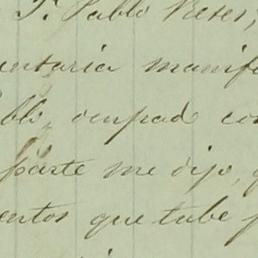 F. Pablo Reser,
entaria manif
blo, ocupad co
parte me dijo, q
entos que tube p